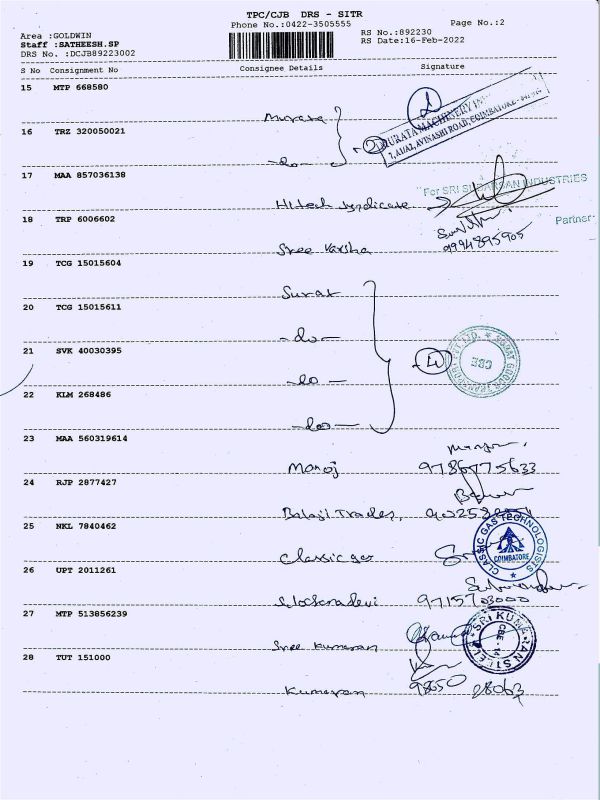 TPC/CJB DRS - SITR
Phone No.:0422-3505555
Page No.:2
Area :GOLDWIN
RS No.:892230
Staff :SATHEESH.SP
RS Date:16-Feb-2022
DRS No. :DCJB89223002
S No Consignment No Consignee Details Signature
15 MTP 668580
MURATA MACHINERY IN
AVINASHI ROAD, COIMBATORE
16 TRZ 320050021
-do-
17 MAA 857036138
For SRI SUDARSAN INDUSTRIES
Hitech Syndicate
18 TRP 6006602
Partner
Sree Varsha 9994895905
19 TCG 15015604
Surat
20 TCG 15015611
-do-
21 SVK 40030395
4
SURAT GOODS TRANSPORT PVT. LTD. CBE
-do-
22 KLM 268486
-do-
23 MAA 560319614
Manoj 9786775633
24 RJP 2877427
Balaji Traders,
25 NKL 7840462
CLASSIC GAS TECHNOLOGISTS
COIMBATORE
Classic gas
26 UPT 2011261
9715703000
27 MTP 513856239
SRI KUMARAN STEELS
CBE-14
Sree Kumaran
28 TUT 151000
Kumaran 98650 28063